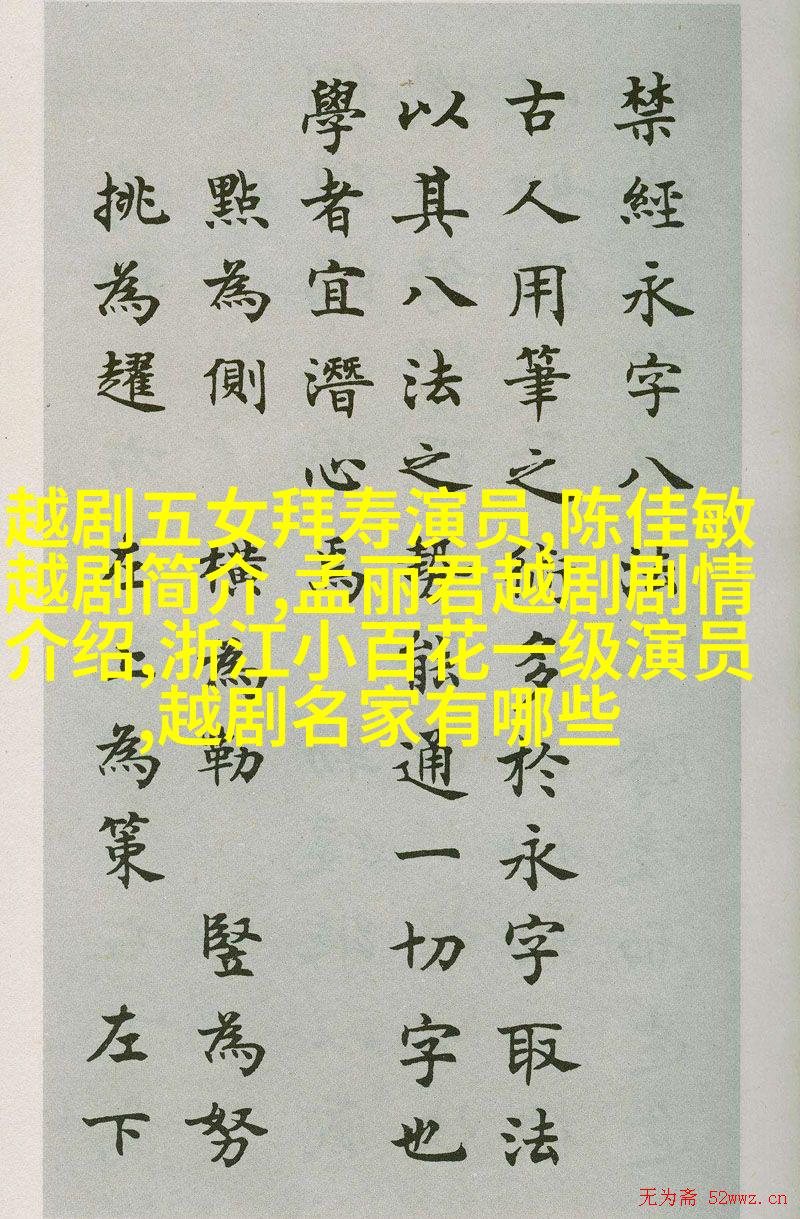 禁經永字八法
古人用筆之術多於永字取法
以其八法之勢能通一切字也
學者宜潛心焉
點為側 橫為勒 豎為努
挑為趯 左上為策 左下
越剧五女拜寿演员,陈佳敏
越剧简介,孟丽君越剧剧情
介绍,浙江小百花一级演员
,越剧名家有哪些
无为斋 52wwz.cn